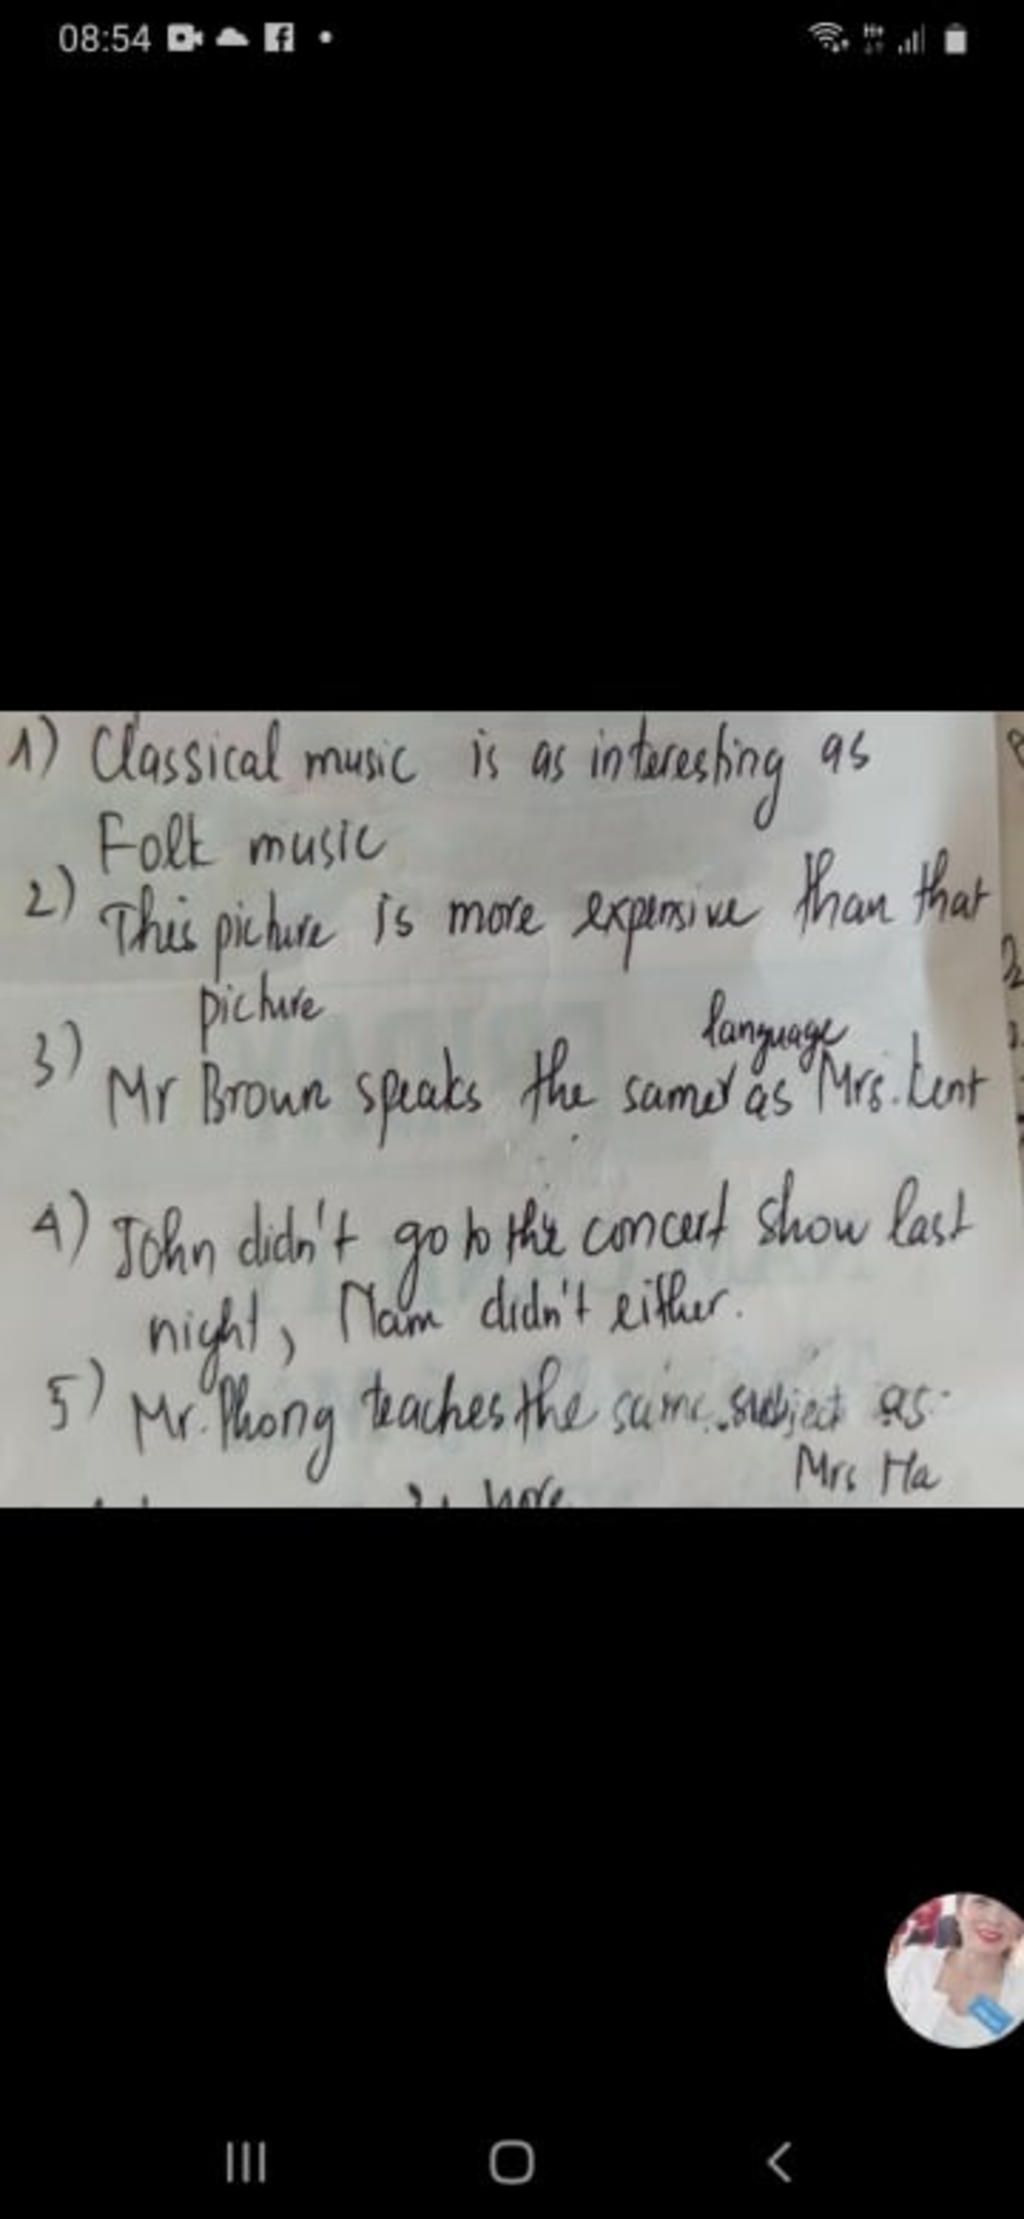 08:54
1) Classical music is as interesting as
Folk music
2) This picture is more expensive than that
picture
language
3) Mr Brown speaks the same as Mrs. Kent
4) John didn't go to the concert show last
night, Nam didn't either.
5) Mr. Phong teaches the same subject as
Mrs Ha